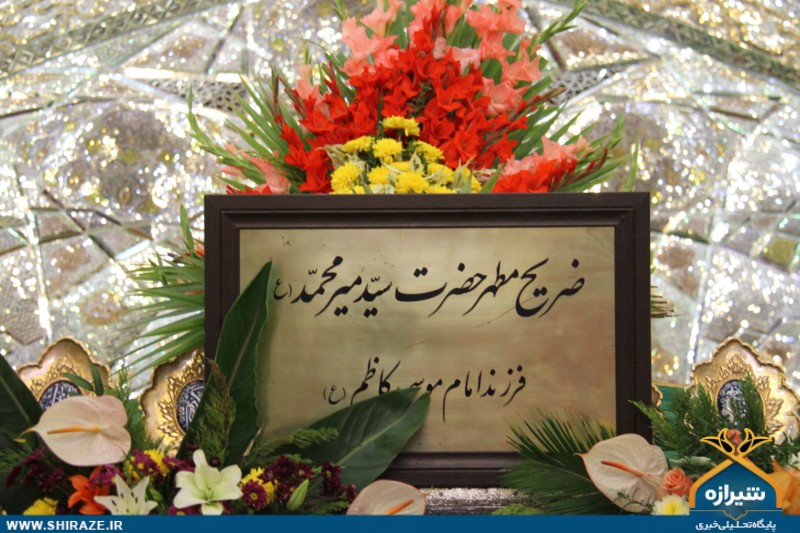 ضریح مطهر حضرت سیّد میر محمّد (ع)
فرزند امام موسی کاظم (ع)
شیرازه
پایگاه تحلیلی خبری
WWW.SHIRAZE.IR